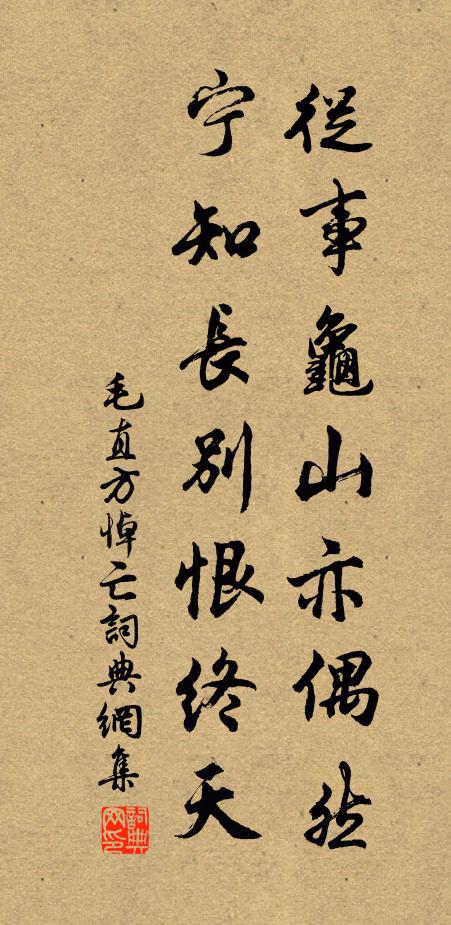 從事龜山亦偶然
宁知長別恨終天
毛直方悼亡詞典網集
詞典網印